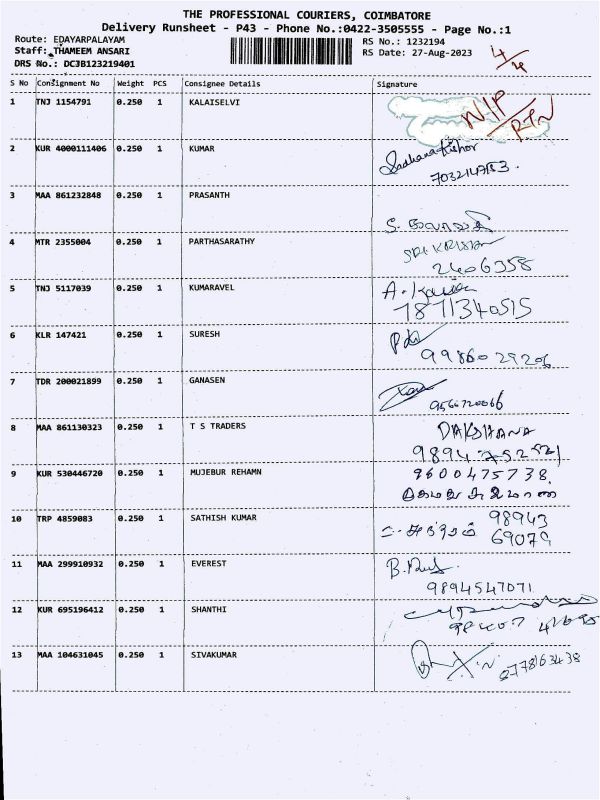 THE PROFESSIONAL COURIERS, COIMBATORE
Delivery Runsheet - P43 - Phone No.:0422-3505555 - Page No.:1
Route: EDAYARPALAYAM
Staff: THAMEEM ANSARI
DRS No.: DCJB123219401
RS No.: 1232194
RS Date: 27-Aug-2023
S No Consignment No Weight PCS Consignee Details Signature
1 TNJ 1154791 0.250 1 KALAISELVI
2 KUR 4000111406 0.250 1 KUMAR
3 MAA 861232848 0.250 1 PRASANTH
4 MTR 2355004 0.250 1 PARTHASARATHY
2406358
5 TNJ 5117039 0.250 1 KUMARAVEL
7871340515
6 KLR 147421 0.250 1 SURESH
9986029206
7 TDR 200021899 0.250 1 GANASEN
8 MAA 861130323 0.250 1 T S TRADERS DAKSHANA
9 KUR 530446720 0.250 1 MUJEBUR REHAMN 9600475738.
10 TRP 4859083 0.250 1 SATHISH KUMAR 98943
69079
11 MAA 299910932 0.250 1 EVEREST
9894547071
12 KUR 695196412 0.250 1 SHANTHI
13 MAA 104631045 0.250 1 SIVAKUMAR